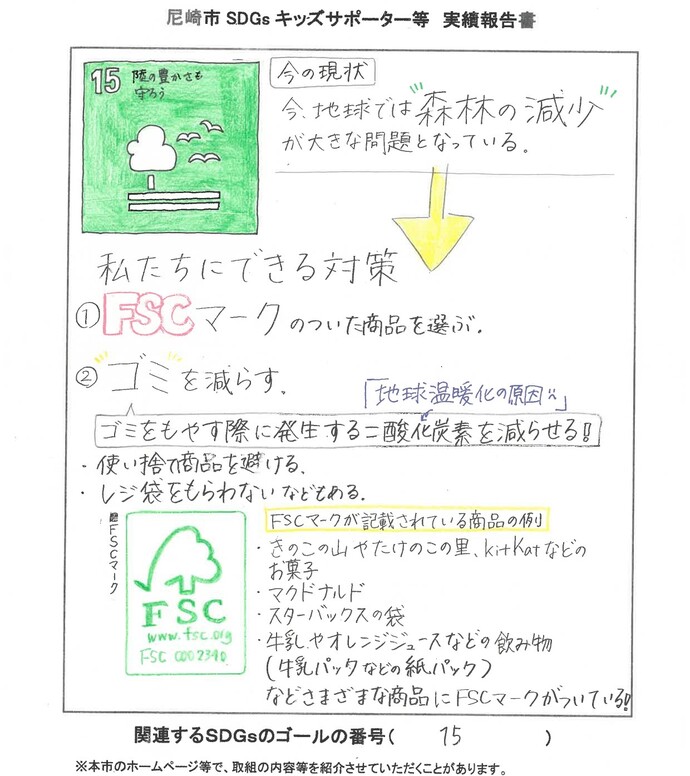 尼崎市 SDGs キッズサポーター等　実績報告書
15 陸の豊かさも
守ろう
今の現状
今、地球では"森林の減少"
が大きな問題となっている。
私たちにできる対策
① FSCマークのついた商品を選ぶ。
② ゴミを減らす。
「地球温暖化の原因」
ゴミをもやす際に発生する二酸化炭素を減らせる!
・使い捨て商品を避ける、
・レジ袋をもらわないなどもある。
FSCマーク
FSC
www.fsc.org
FSC C002340
FSCマークが記載されている商品の例
・きのこの山やたけのこの里、kitKatなどの
お菓子
・マクドナルド
・スターバックスの袋
・牛乳やオレンジジュースなどの飲み物
(牛乳パックなどの紙パック)
などさまざまな商品にFSCマークがついている!
関連するSDGsのゴールの番号(　15　)
※本市のホームページ等で、取組の内容等を紹介させていただくことがあります。